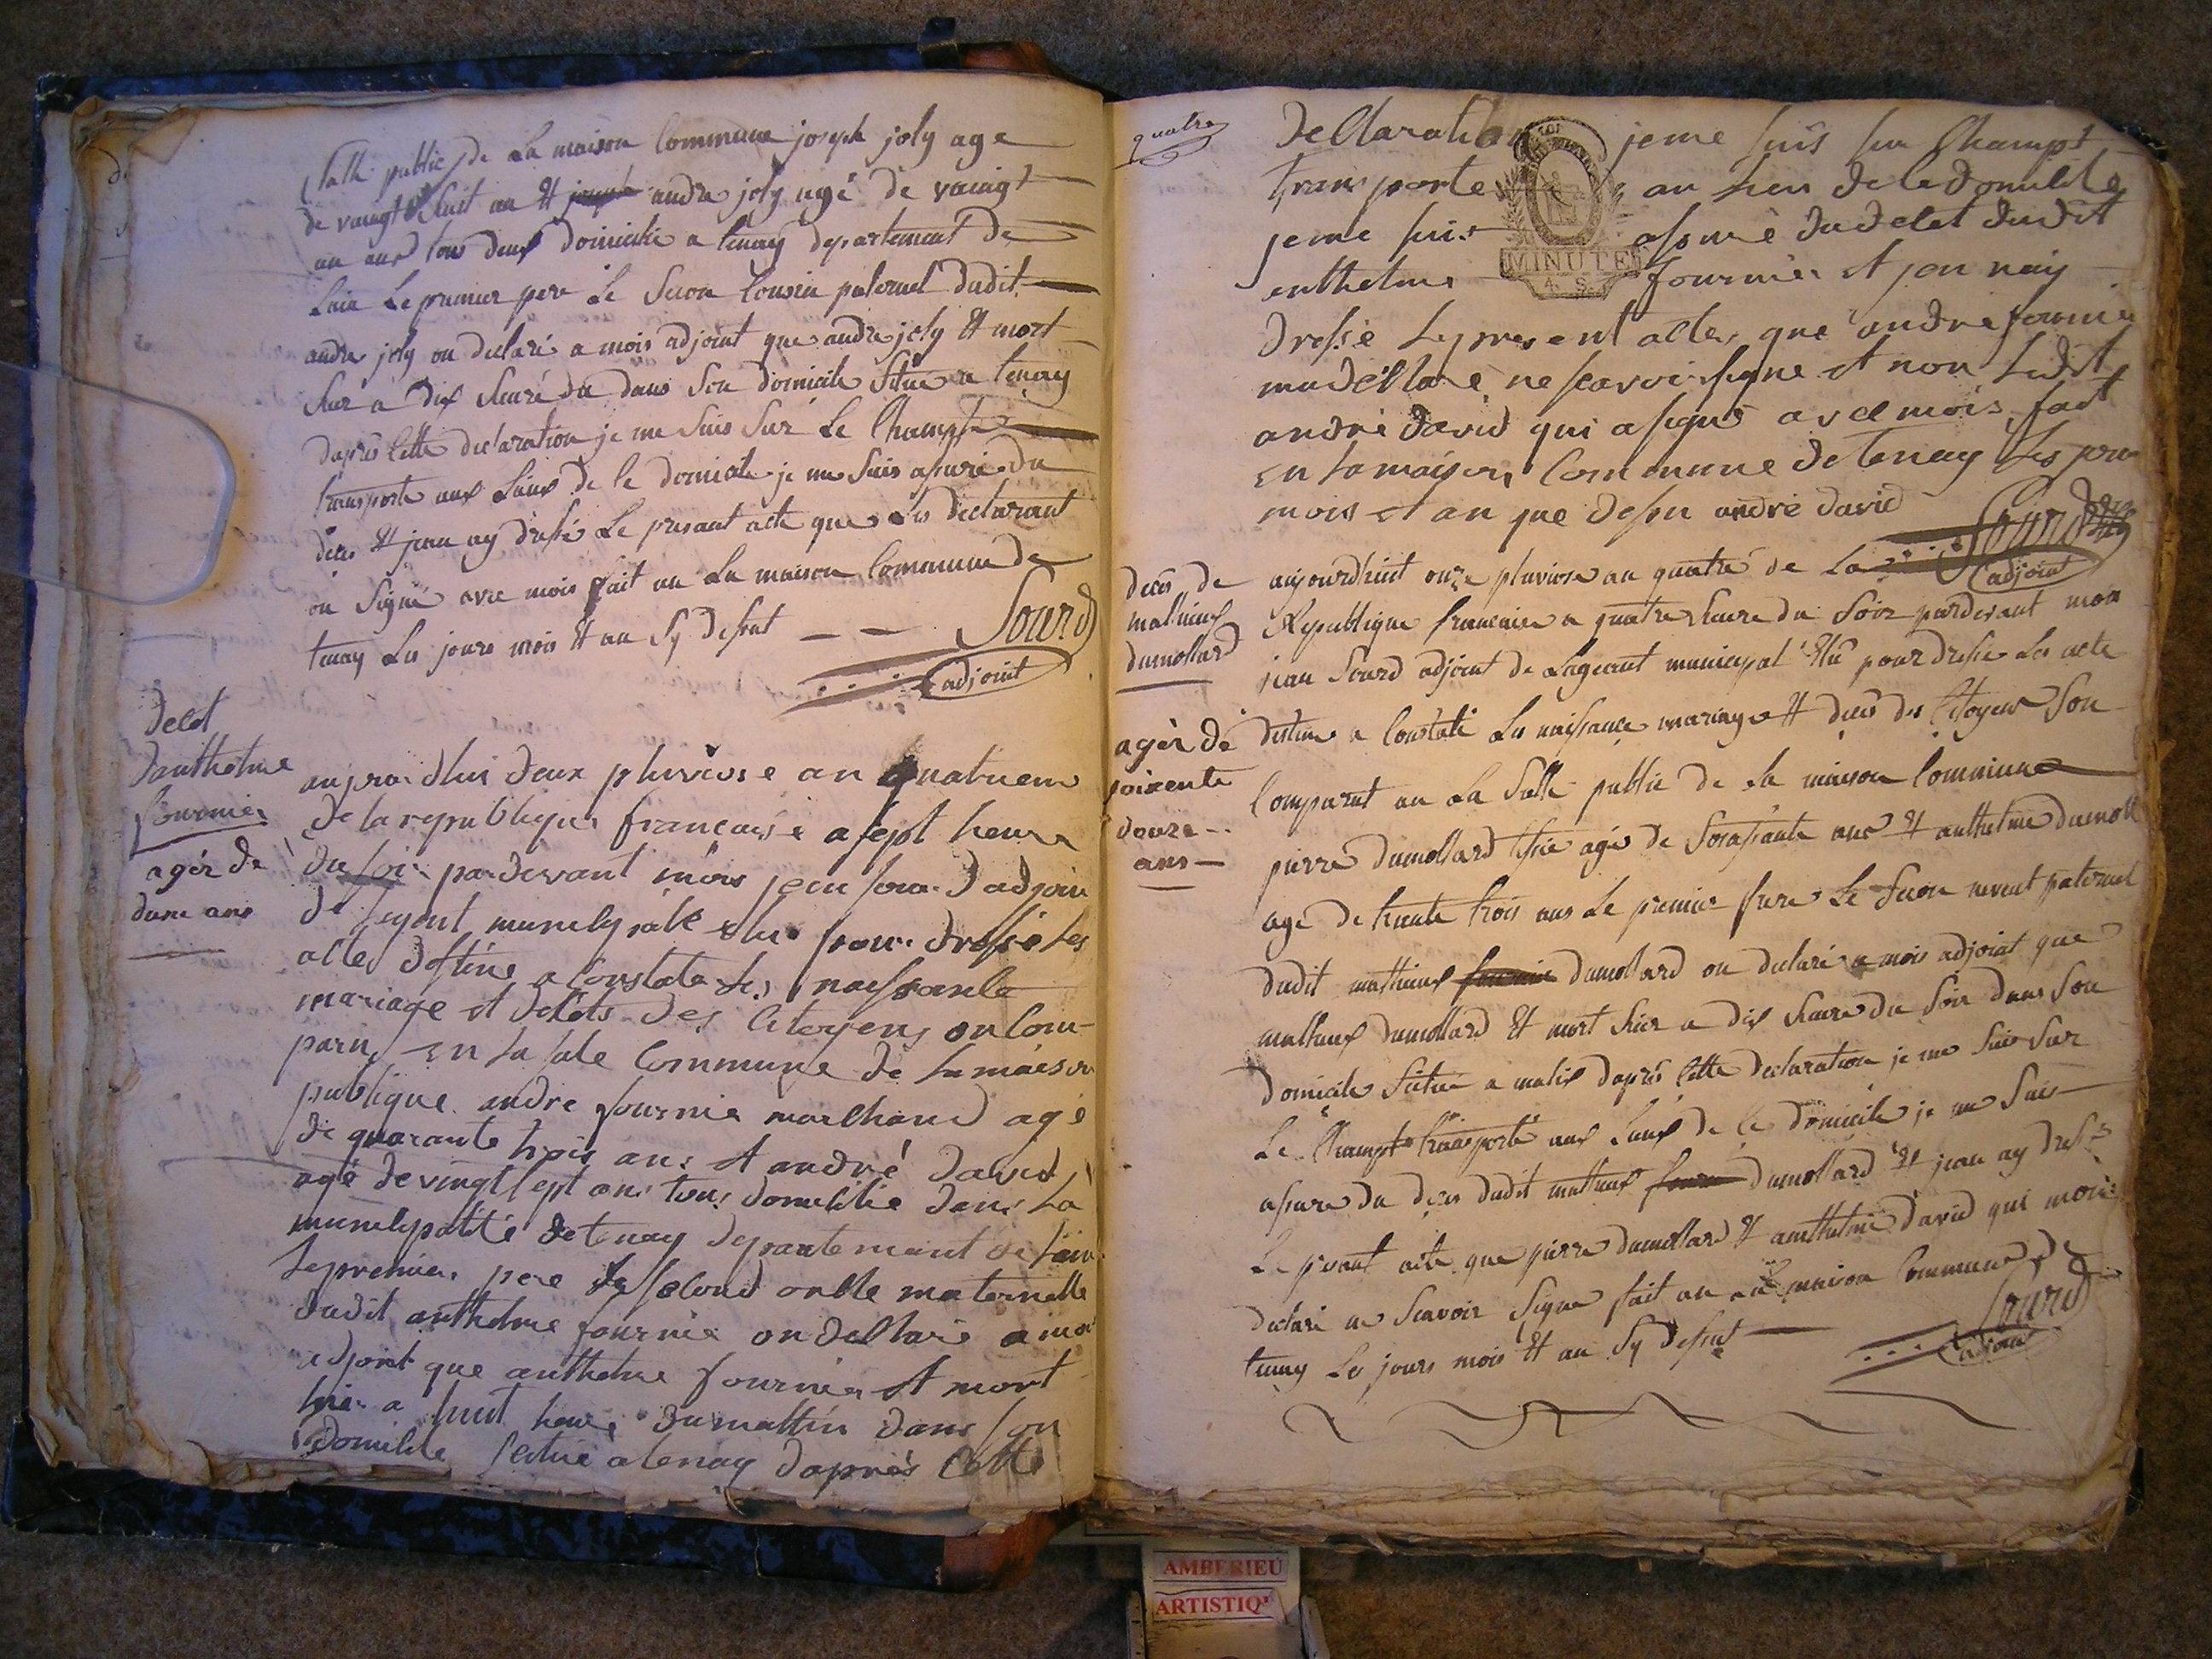 Salle public de La maison Commune joseph joly age
de vaingt huit an Et andre joly agé de vaingt
un ans tous deux domicilie a tenay departement de
Lain Le premier pere Le Segon Cousin paternel dudit
andre joly on declaré a mois adjoint que andre joly Et mort
hier à dix heure du dans Son domicile Situé a tenay
dapres Cette declaration je me Suis Sur Le Champt
transporte aux Lieux de le domicile je me Suis assuré du
deces Et jean ay dressé Le present acte que les declarant
on Signé avec mois fait an La maison Commune de
tenay Les jours mois Et an Sy desut
Sourd
adjoint
decet
danthelme
fournier
agér de
dune ans
aujourdhui deux pluviose an quatrieme
de la republique francaise a sept heure
du soir pardevant mois jean sourd adjoin
de lagent municipale elu pour dressé les
actes destine a Constate les naissance
mariage et decets des Citoyens on Com-
paru en La sale Commune de La maison
publique andre fournie marchand agé
de quarante trois ans et andré david
agé de vingt sept ans tous domicilié dans La
municipalité de tenay departement de Lain
Le premier pere Le second oncle maternelle
dudit anthelme fournier on declare a moi
adjoint que anthelme fournier et mort
hier a huit heure du mattin dans son
domicile situé a tenay daprés Cette
quatre
declaration je me suis sur Champt
transporte au lieu de le domicile
je me suis assuré du decet dudit
anthelme fournier et jen nay
MINUTE
dressé le present acte, que andre fournie
ma declaré ne scavoir signe et non Ledit
andré david qui a signé avec mois, fait
en La maison Commune de tenay les jour
mois et an que desu andré david
Sourd
adjoint
deces de
mathieux
dumollard
agér de
soixente
douze
ans
aujourdhuit onze pluviose an quatre de La
Republique francaise a quatre heure du Soir pardevant mon
jean Sourd adjoint de Lageant municipal Elu pour dresse Les acte
destine a Constate Les naissance mariage Et deces des Citoyens Son
Comparut an La Salle public de La maison Commune
pierre dumollard agé de Soissante ans Et anthelme dumoll
agé de trante trois ans Le premier frere Le Segon neveut paternel
dudit mathieux dumollard on declaré a mois adjoint que
mathieux dumollard Et mort hier a dix heure du Soir dans Son
domicile Situé a malix dapres Cette declaration je me Suis Sur
Le Champt transporté aux Lieux de le domicile je me Suis
assure du deces dudit mathieux dumollard Et jean ay dressé
Le present acte que pierre dumollard Et anthelme david qui mois
declaré ne Scavoir Signe fait an La maison Commune de
tenay Les jours mois Et an Sy desut
Sourd
adjoint
AMBERIEU
ARTISTIQ'